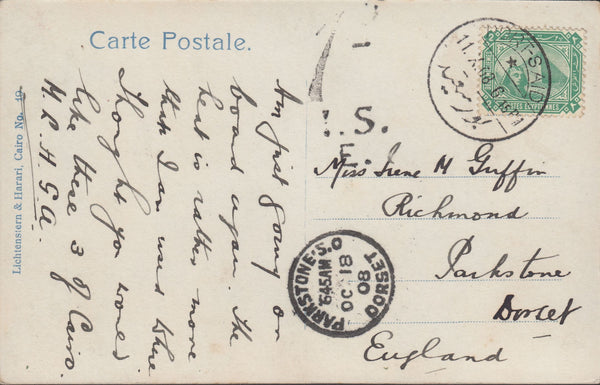 Carte Postale.
Am just going on
board again. The
heat is rather more
than I am used to here
Thought you would
like these 3 of Cairo.
M. R. H. G. A.
Lichtenstern & Harari, Cairo No. 49.
.S.
Miss Irene M Guffin
Richmond
Parkstone
Dorset
England
PARKSTONE·S.O
6 45AM
OC 18
08
DORSET
T-SAID
POSTES EGYPTIENNES